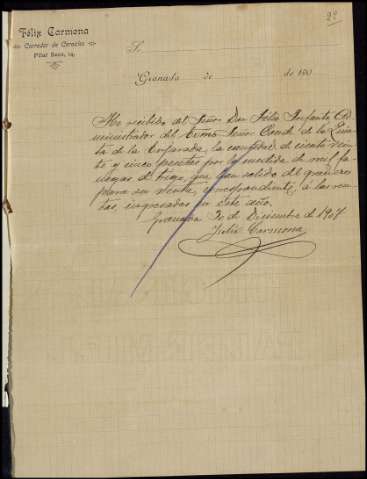 2º
Félix Carmona
Corredor de Cereales
Pilar Seco, 14.
S.
Granada de de 190
He recibido del Señor Don Felix Infante, Ad-
ministrador del Exmo Señor Conde de la Quin-
ta de la Enjarada, la cantidad de ciento vein-
te y cinco pesetas por la medida de mil fa-
negas de trigo, que han salido del granero
para su venta, correspondiente, á las ren-
tas, ingresadas en este año.
Granada 30 de Diciembre de 1907
Felix Carmona